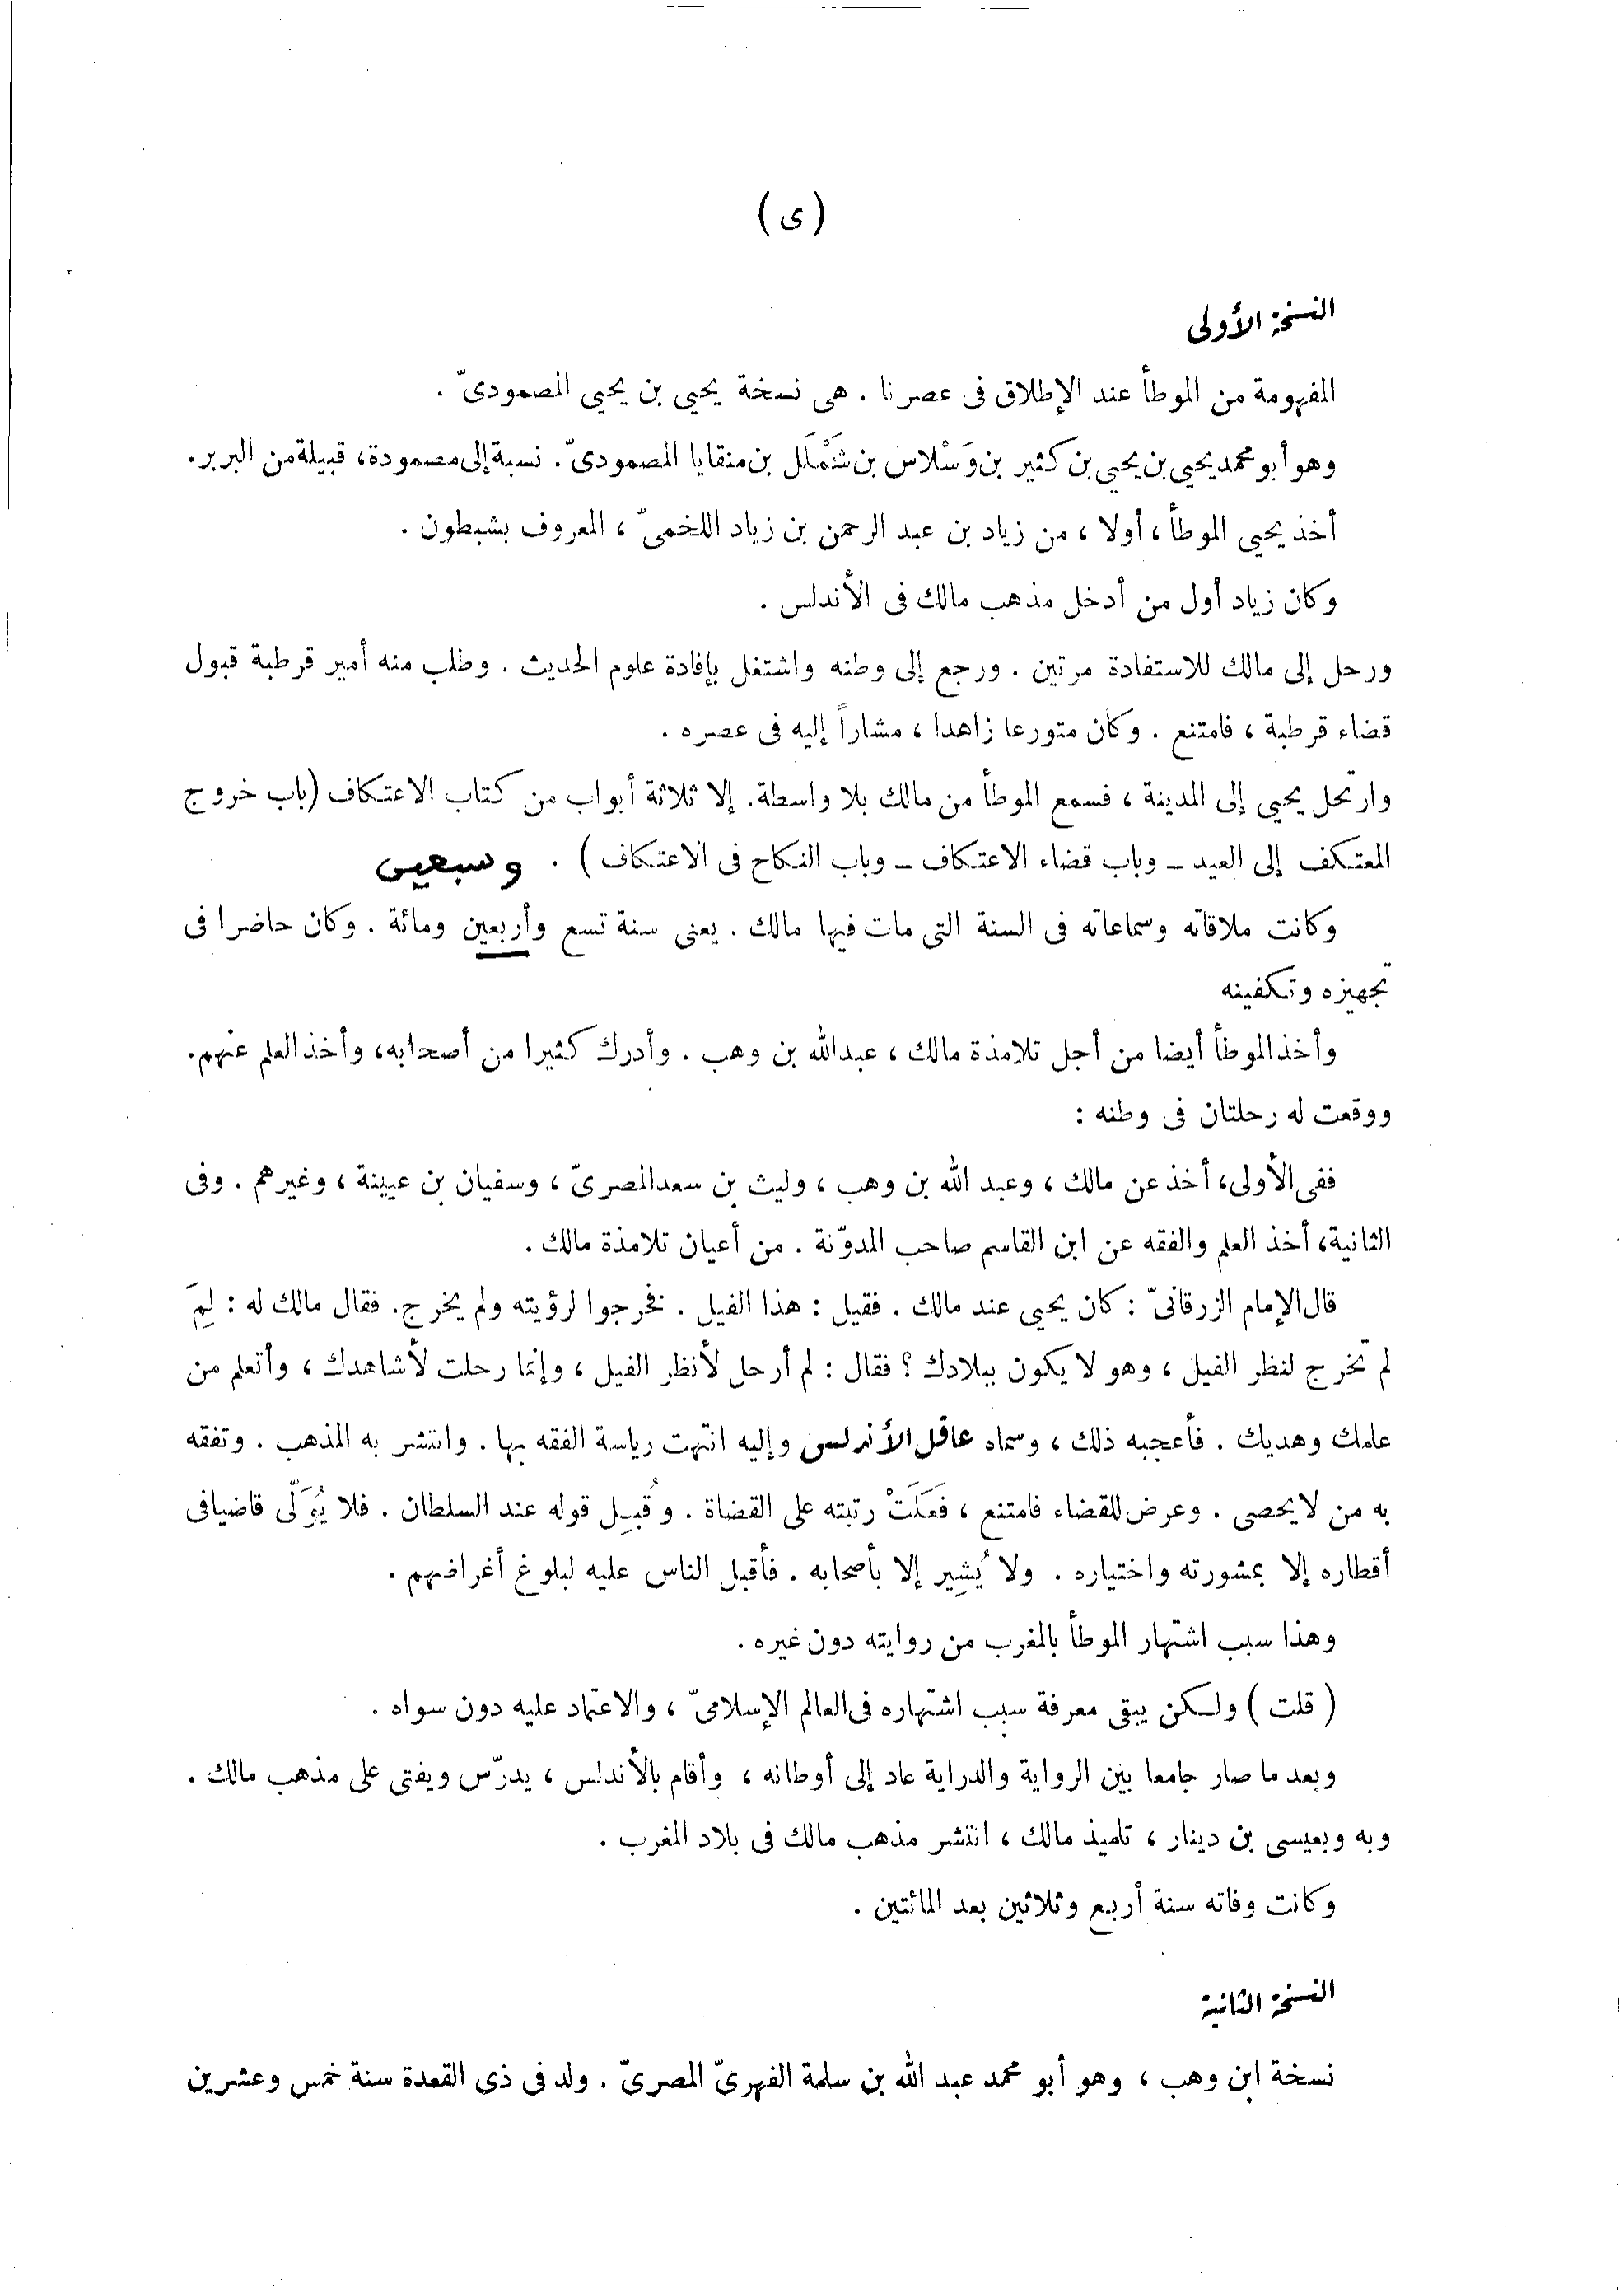 (ى)
النسخة الأولى
المفهومة من الموطأ عند الإطلاق فى عصرنا . هى نسخة يحيى بن يحيى المصمودىّ .
وهو أبو محمد يحيى بن يحيى بن كثير بن وَسْلاس بن شَمْلَل بن منقايا المصمودىّ . نسبة إلى مصمودة، قبيلة من البربر .
أخذ يحيى الموطأ ، أولا ، من زياد بن عبد الرحمن بن زياد اللخمىّ ، المعروف بشبطون .
وكان زياد أول من أدخل مذهب مالك فى الأندلس .
ورحل إلى مالك للاستفادة مرتين . ورجع إلى وطنه واشتغل بإفادة علوم الحديث . وطلب منه أمير قرطبة قبول
قضاء قرطبة ، فامتنع . وكان متورعا زاهدا ، مشاراً إليه فى عصره .
وارتحل يحيى إلى المدينة ، فسمع الموطأ من مالك بلا واسطة . إلا ثلاثة أبواب من كتاب الاعتكاف (باب خروج
المعتكف إلى العيد – وباب قضاء الاعتكاف – وباب النكاح فى الاعتكاف ) . وسبعين
وكانت ملاقاته وسماعاته فى السنة التى مات فيها مالك . يعنى سنة تسع وأربعين ومائة . وكان حاضرا فى
تجهيزه وتكفينه
وأخذ الموطأ أيضا من أجل تلامذة مالك ، عبدالله بن وهب . وأدرك كثيرا من أصحابه، وأخذ العلم عنهم .
ووقعت له رحلتان فى وطنه :
ففى الأولى، أخذ عن مالك ، وعبد الله بن وهب ، وليث بن سعد المصرىّ ، وسفيان بن عيينة ، وغيرهم . وفى
الثانية، أخذ العلم والفقه عن ابن القاسم صاحب المدوّنة . من أعيان تلامذة مالك .
قال الإمام الزرقانىّ : كان يحيى عند مالك . فقيل : هذا الفيل . فخرجوا لرؤيته ولم يخرج . فقال مالك له : لِمَ
لم تخرج لنظر الفيل ، وهو لا يكون ببلادك ؟ فقال : لم أرحل لأنظر الفيل ، وإنما رحلت لأشاهدك ، وأتعلم من
علمك وهديك . فأعجبه ذلك ، وسماه عاقل الأندلس وإليه انتهت رياسة الفقه بها . وانتشر به المذهب . وتفقه
به من لا يحصى . وعرض للقضاء فامتنع ، فَعَلَتْ رتبته على القضاة . وقُبِل قوله عند السلطان . فلا يُوَلَّى قاضيا فى
أقطاره إلا بمشورته واختياره . ولا يُشِير إلا بأصحابه . فأقبل الناس عليه لبلوغ أغراضهم .
وهذا سبب اشتهار الموطأ بالمغرب من روايته دون غيره .
( قلت ) ولكن يبقى معرفة سبب اشتهاره فى العالم الإسلامىّ ، والاعتماد عليه دون سواه .
وبعد ما صار جامعا بين الرواية والدراية عاد إلى أوطانه ، وأقام بالأندلس ، يدرّس ويفتى على مذهب مالك .
وبه وبعيسى بن دينار ، تلميذ مالك ، انتشر مذهب مالك فى بلاد المغرب .
وكانت وفاته سنة أربع وثلاثين بعد المائتين .
النسخة الثانية
نسخة ابن وهب ، وهو أبو محمد عبد الله بن سلمة الفهرىّ المصرىّ . ولد فى ذى القعدة سنة خمس وعشرين